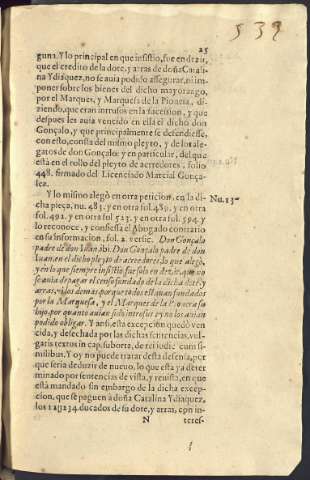 539
25
guna. Y lo principal en que insistio, fue en dezir,
que el credito de la dote, y arras de doña Catali
na Ydiaquez, no se auia podido assegurar, ni im
poner sobre los bienes del dicho mayorazgo,
por el Marques, y Marquesa de la Pioueta, di-
ziendo, que eran intrusos en la sucession, y que
despues les auia vencido en ella el dicho don
Gonçalo, y que principalmente se defendiesse,
con esto, consta del mismo pleyto, y de los ale-
gatos de don Gonçalo: y en particular, del que
està en el rollo del pleyto de acreedores, folio
448. firmado del Licenciado Marcial Gonça-
lez.
Y lo mismo alegò en otra peticion, en la di-
cha pieça, nu. 483. y en otra fol. 489. y en otra
fol. 492. y en otra fol 527. y en otra fol. 594. y
lo reconoce, y confiessa el Abogado contrario
en su informacion, fol. 2. versic. Don Gonçalo
padre de don Iuan, ibi. Don Gonçalo padre de don
Iuan, en el dicho pleyto de acreedores, lo que alegò,
y en lo que siempre insistiò fue solo en dezir, que no
se auia de pagar el censo fundado de la dicha dote, y
arras, ni los demas, porque todos estauan fundados
por la Marquesa, y el Marques de la Pioueta su
hijo, por quanto auian sido intrusos, y no los auian
podido obligar. Y ansi, esta excepcion quedò ven
cida, y desechada por las dichas sentencias, vul-
garis textus in cap. suborta, de re iudic. cum si-
milibus. Y oy no puede tratar desta defensa, por
que seria deduzir de nueuo, lo que està ya deter
minado por sentencias de vista, y reuista, en que
està mandado sin embargo de la dicha excep-
cion, que se paguen à doña Catalina Ydiaquez,
los 11234. ducados de su dote, y arras, con in-
N
teres-
Nu. 13